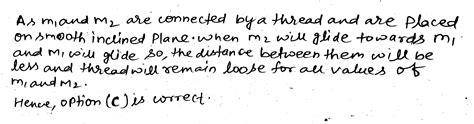 As m₁ and m₂ are connected by a thread and are placed
on smooth inclined Plane. when m₂ will glide towards m₁
and m₁ will glide so, the distance between them will be
less and thread will remain loose for all values of
m₁ and m₂.
Hence, option (c) is correct.